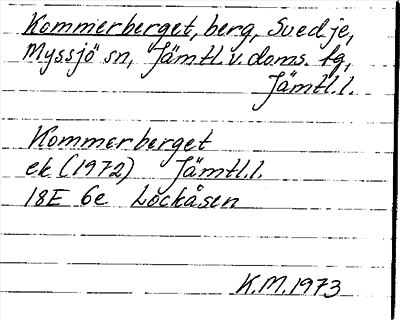 Kommerberget, berg, Svedje,
Myssjö sn, Jämtl. v. doms. tg,
Jämtl.l.
Kommerberget
ek (1972) Jämtl.l.
18E 6e Lockåsen
K.M. 1973